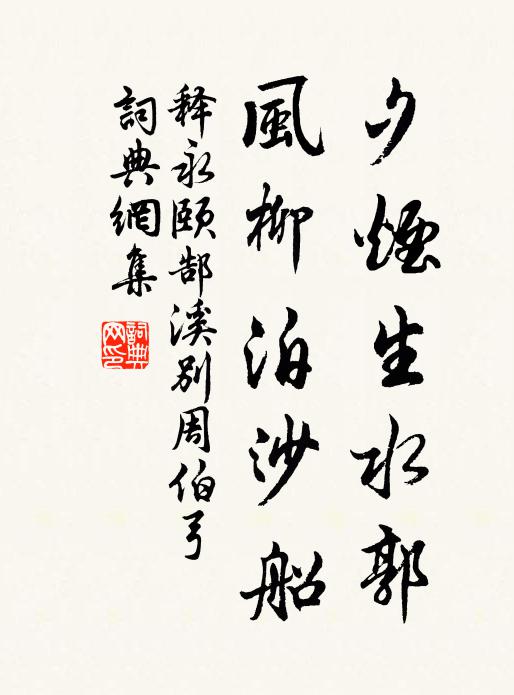 夕煙生水郭
風柳泊沙船
释永頤郜溪別周伯弓
詞典網集
詞典网印